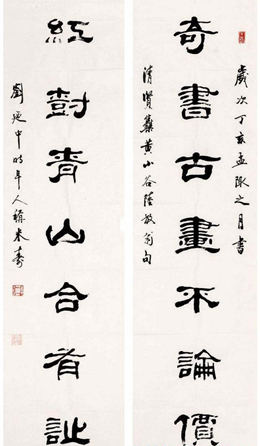 歲次丁亥孟陬之月書
奇書古畫不論價
清賢集黃小谷陸放翁句
紅樹青山合有詩
劉延中時年人稱米壽